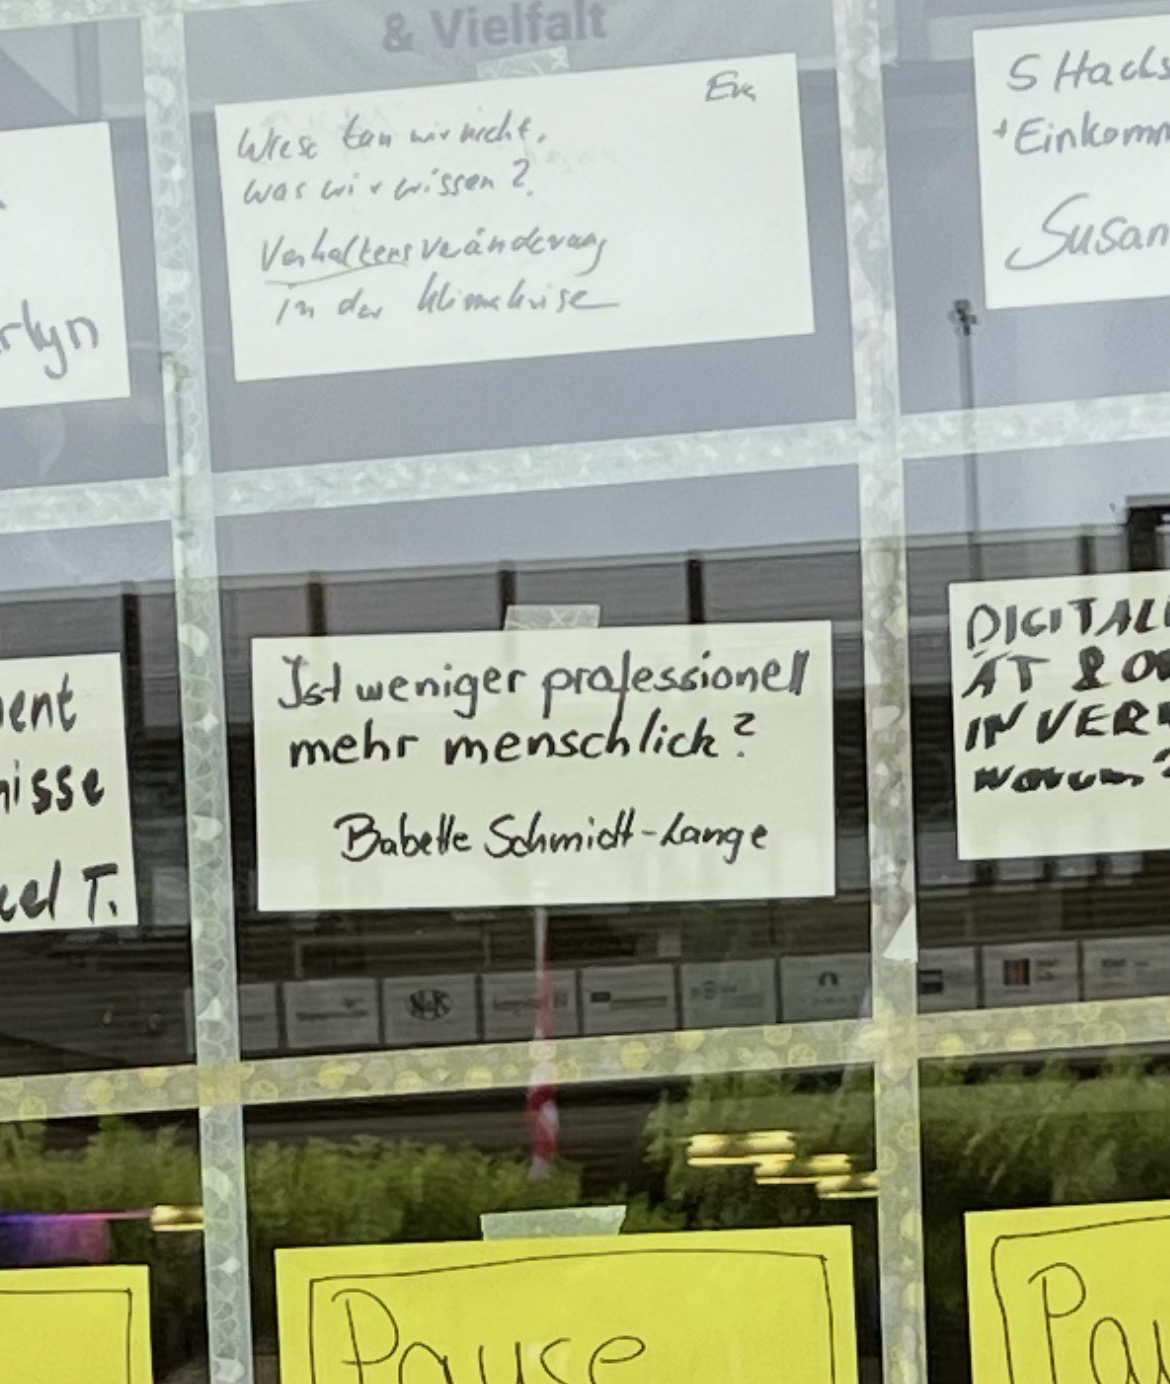 & Vielfalt
Eva
Wieso tun wir nicht,
was wir wissen?
Verhaltensveränderung
in der Klimakrise
5 Hacks
+ Einkomm
Susan
rlyn
ent
nisse
el T.
Ist weniger professionell
mehr menschlich?
Babette Schmidt-Lange
DIGITALI
ÄT & O
IN VER
warum?
Pause
Pau